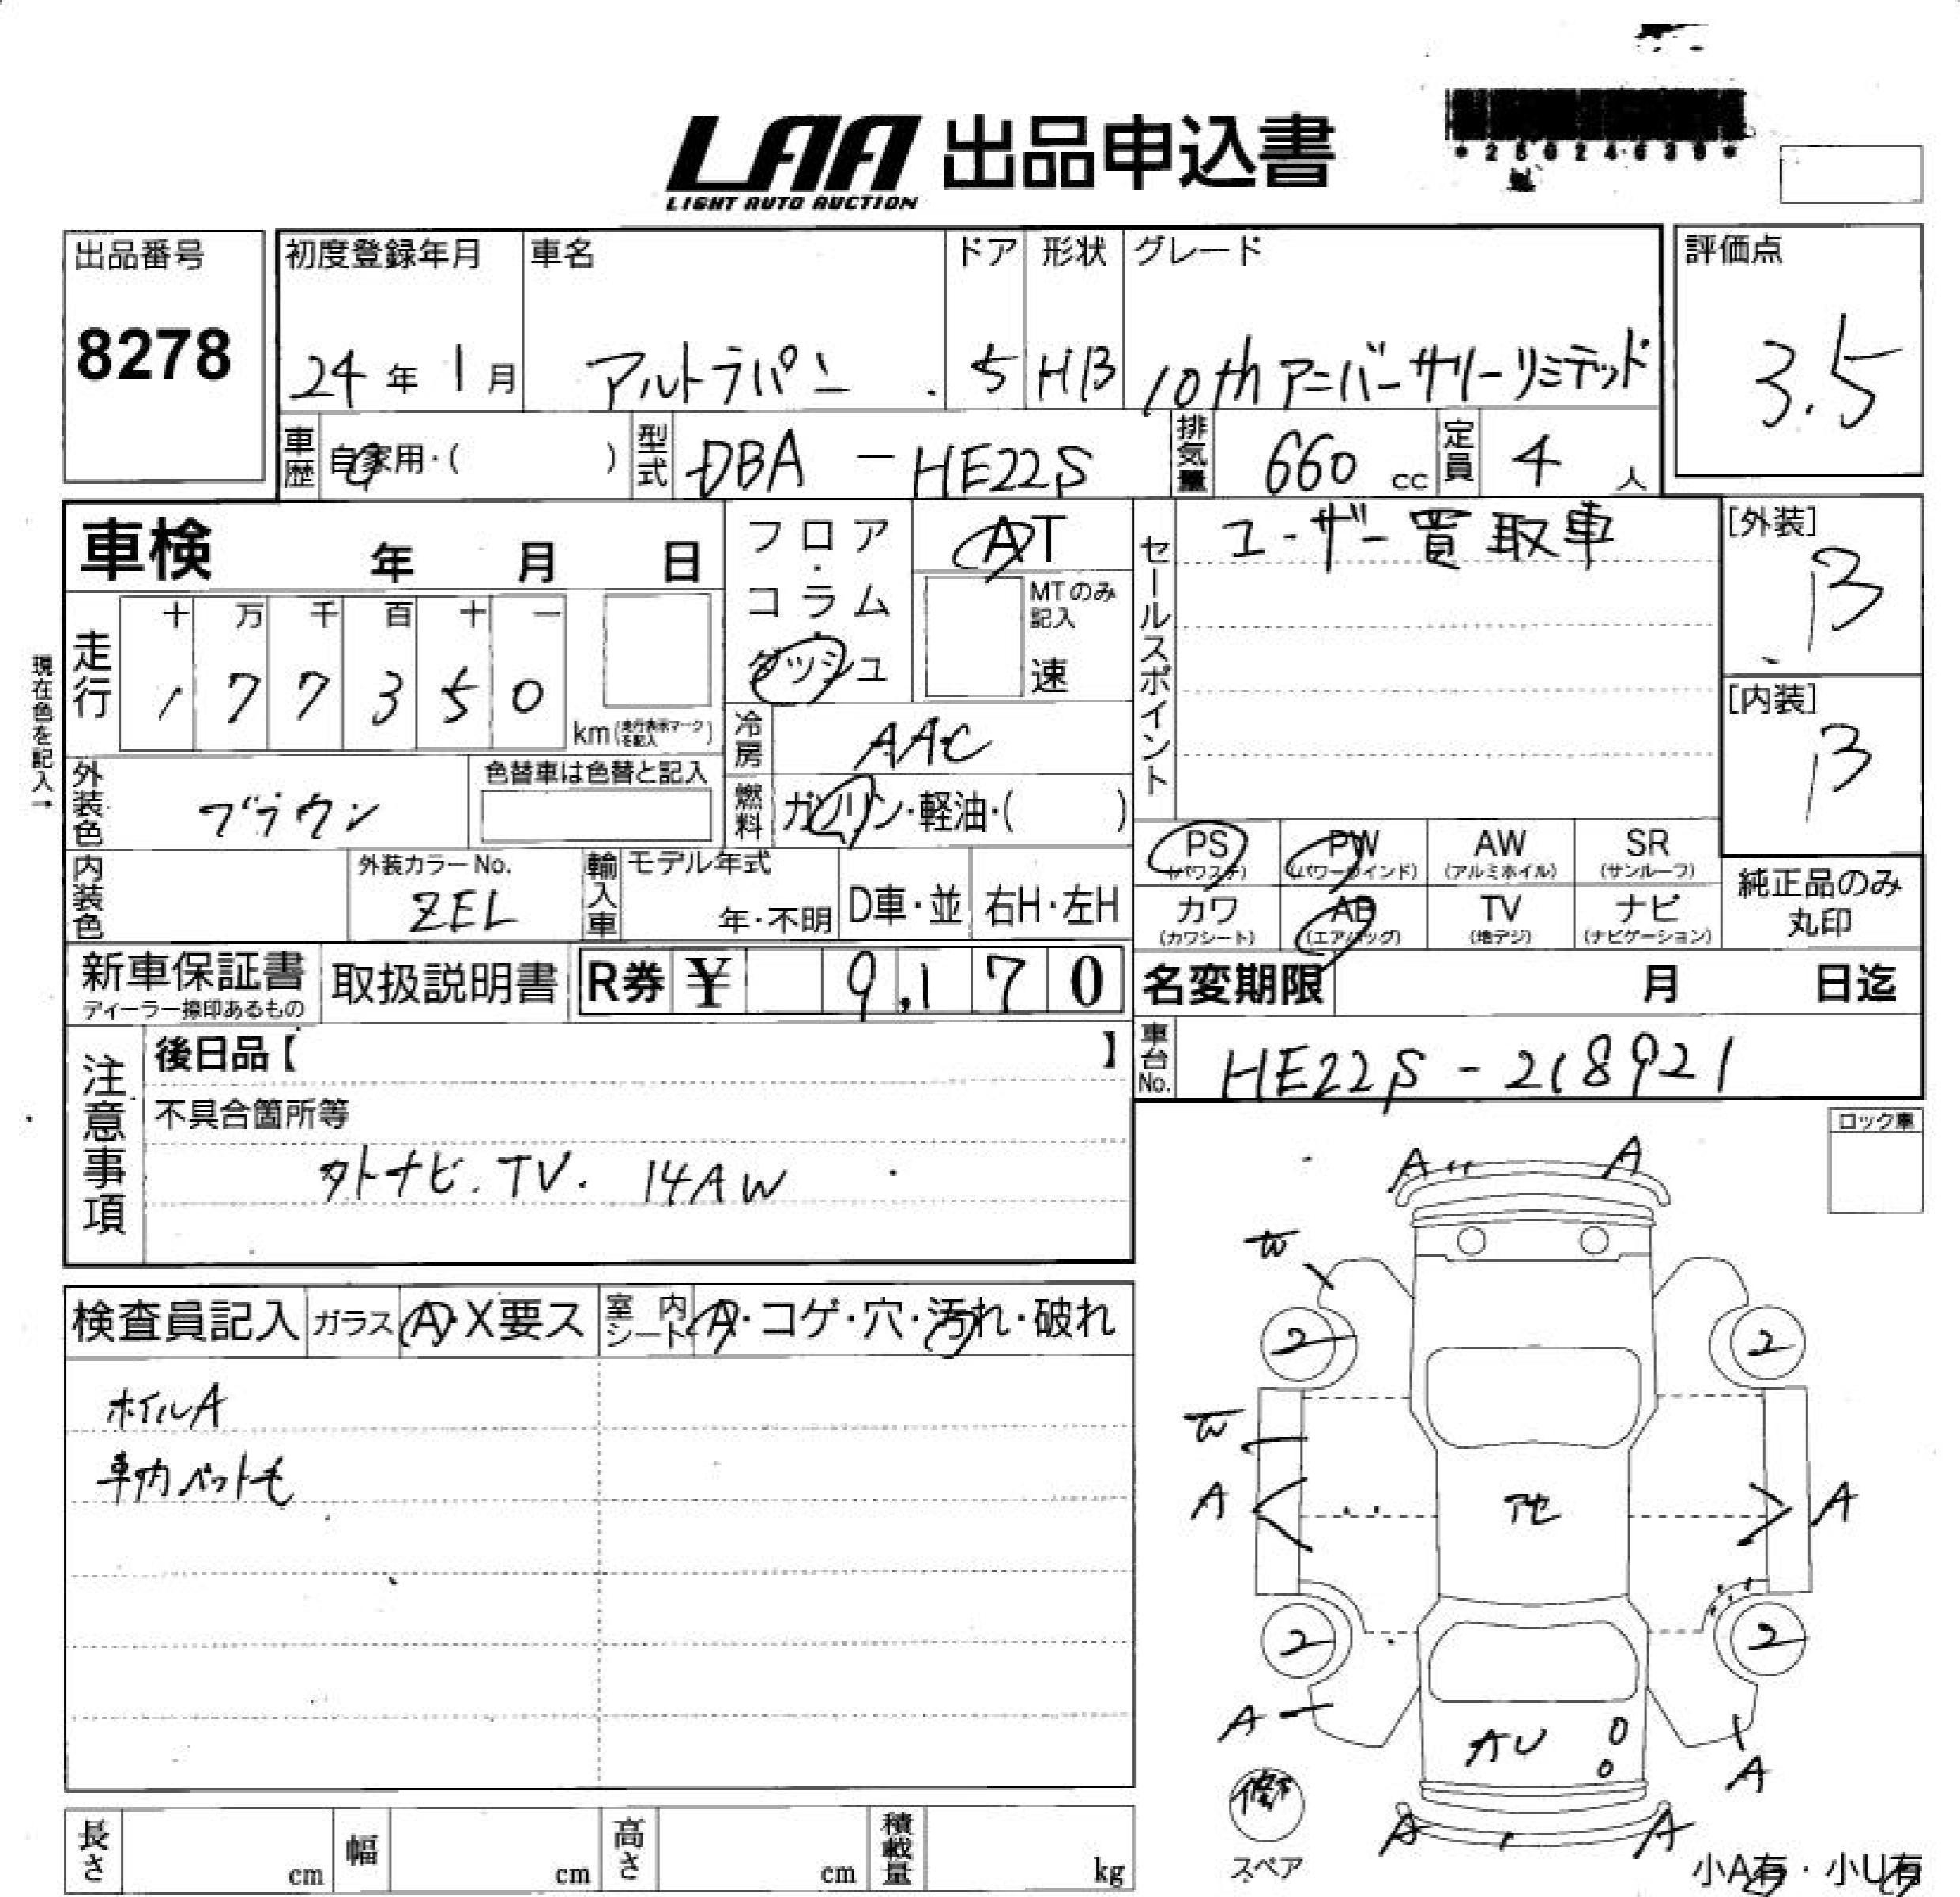 *25024639*
LAA 出品申込書
LIGHT AUTO AUCTION
出品番号
8278
初度登録年月
24年1月
車名
アルトラパン
ドア
5
形状
HB
グレード
10thアニバーサリーリミテッド
評価点
3.5
車歴
自家用・( )
型式
DBA - HE22S
排気量
660 cc
定員
4 人
車検 年 月 日
フロア・コラム・ダッシュ
AT
MTのみ記入
速
セールスポイント
ユーザー買取車
[外装]
B
[内装]
B
現在色を記入→
走行
十 万 千 百 十 一
1 7 7 3 5 0
km(走行表示マークを記入)
冷房
AAC
外装色
ブラウン
色替車は色替と記入
燃料
ガソリン・軽油・( )
内装色
外装カラーNo.
ZEL
輸入車
モデル年式
年・不明
D車・並
右H・左H
PS
(パワステ)
PW
(パワーウインド)
AW
(アルミホイル)
SR
(サンルーフ)
カワ
(カワシート)
AB
(エアバッグ)
TV
(地デジ)
ナビ
(ナビゲーション)
純正品のみ
丸印
新車保証書
ディーラー捺印あるもの
取扱説明書
R券 ¥ 9,170
名変期限 月 日迄
車台No.
HE22S-218921
注意事項
後日品【 】
不具合箇所等
外ナビ.TV. 14AW
ロック車
検査員記入
ガラス
A・X要ス
室内シート
A・コゲ・穴・汚れ・破れ
ホイルA
車内ペット毛
A A
W
2 2
W
A A
ア セ
2 2
A
AU
A
A A
スペア
小A有・小U有
長さ cm
幅 cm
高さ cm
積載量 kg